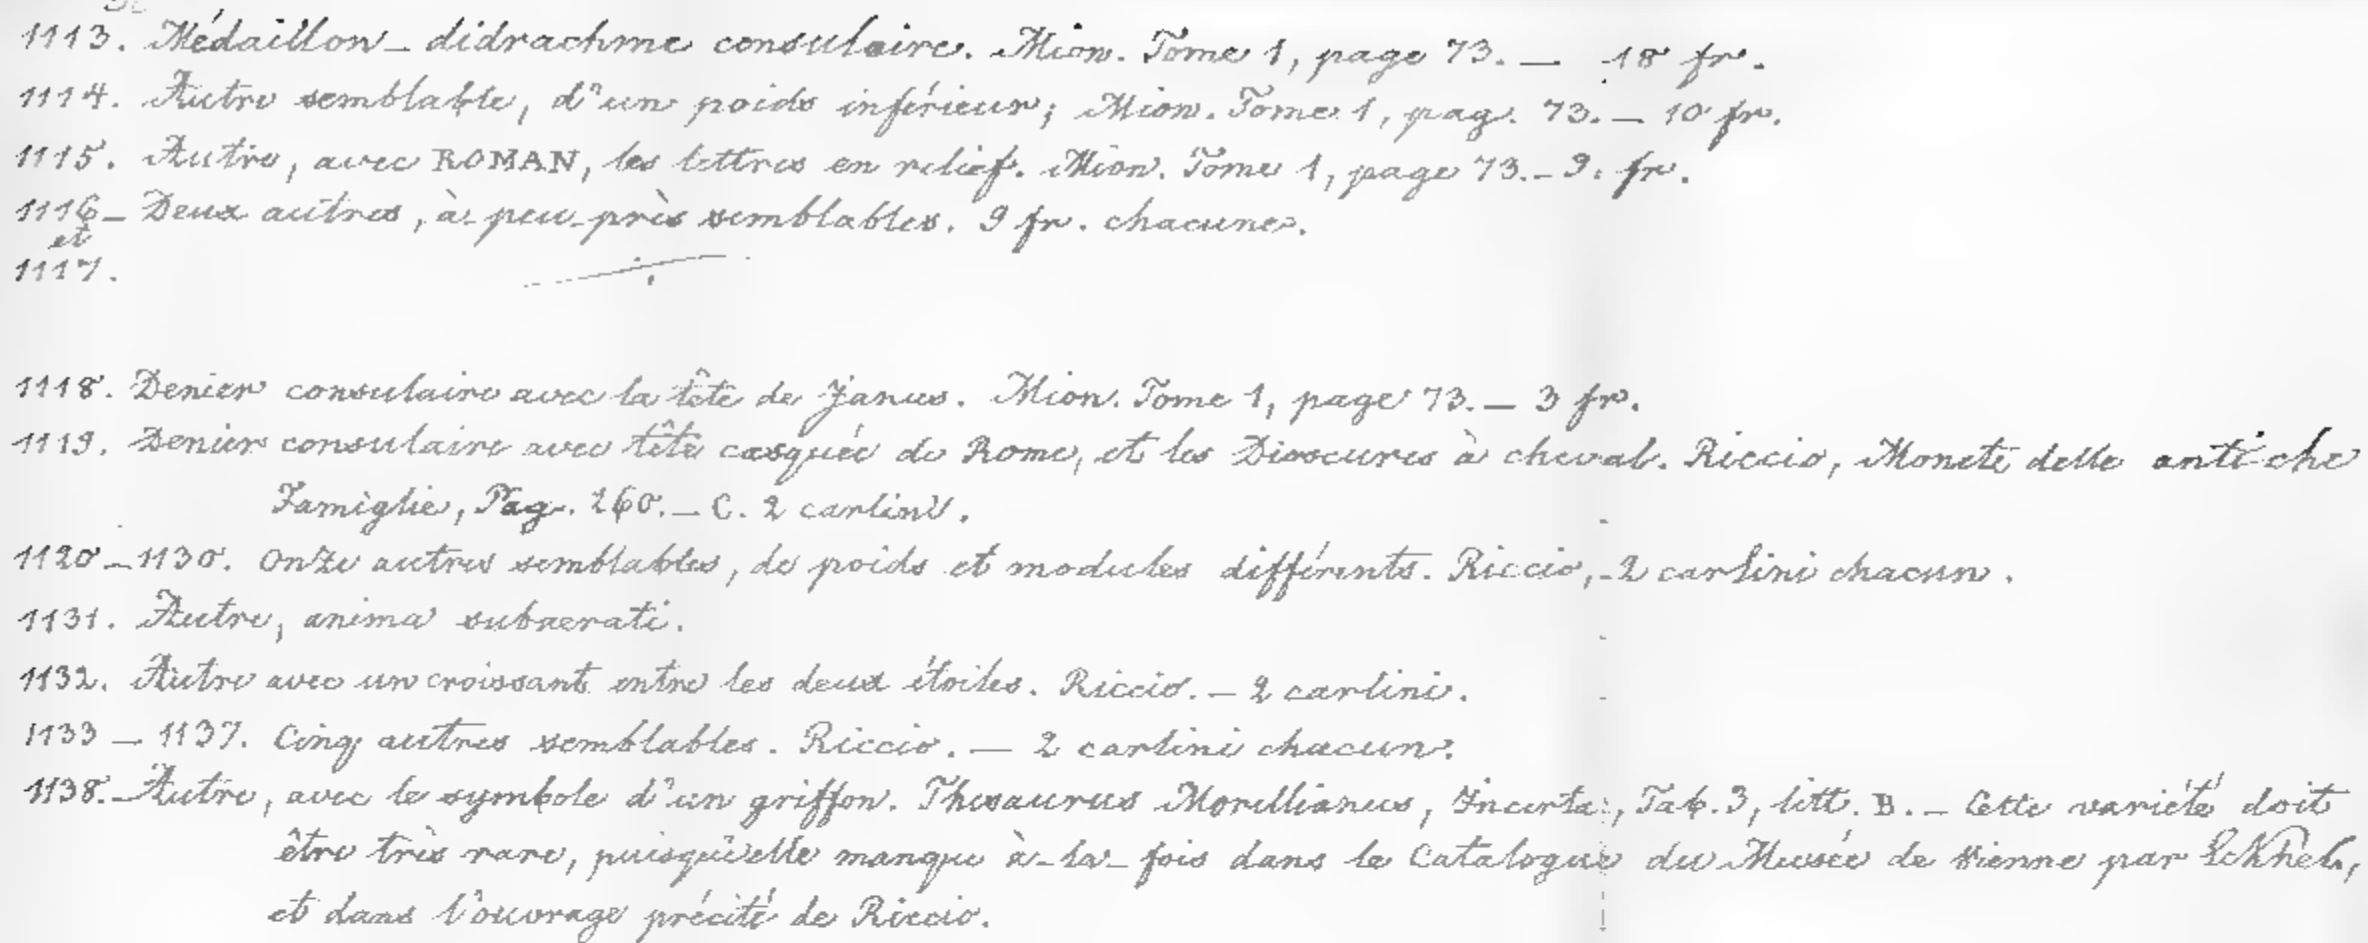 1113. Médaillon_ didrachme consulaire. Mion. Tome 1, page 73. — 18 fr.
1114. Autre semblable, d'un poids inférieur; Mion. Tome 1, pag. 73. — 10 fr.
1115. Autre, avec ROMAN, les lettres en relief. Mion. Tome 1, page 73. — 9. fr.
1116 — Deux autres, à-peu-près semblables. 9 fr. chacune.
et
1117.
1118. Denier consulaire avec la tête de Janus. Mion. Tome 1, page 73. — 3 fr.
1119. Denier consulaire avec tête casquée de Rome, et les Dioscures à cheval. Riccio, Monete delle antiche
Famiglie, Pag. 260. — C. 2 carlini.
1120. — 1130. Onze autres semblables, de poids et modules différents. Riccio, - 2 carlini chacun.
1131. Autre, anima subaerati.
1132. Autre avec un croissant entre les deux étoiles. Riccio. — 2 carlini.
1133 — 1137. Cinq autres semblables. Riccio. — 2 carlini chacun.
1138. — Autre, avec le symbole d'un griffon. Thesaurus Morellianus, Incerta, Tab. 3, litt. B. — Cette variété doit
être très rare, puisqu'elle manque à-la-fois dans le Catalogue du Musée de Vienne par Eckhel,
et dans l'ouvrage précité de Riccio.